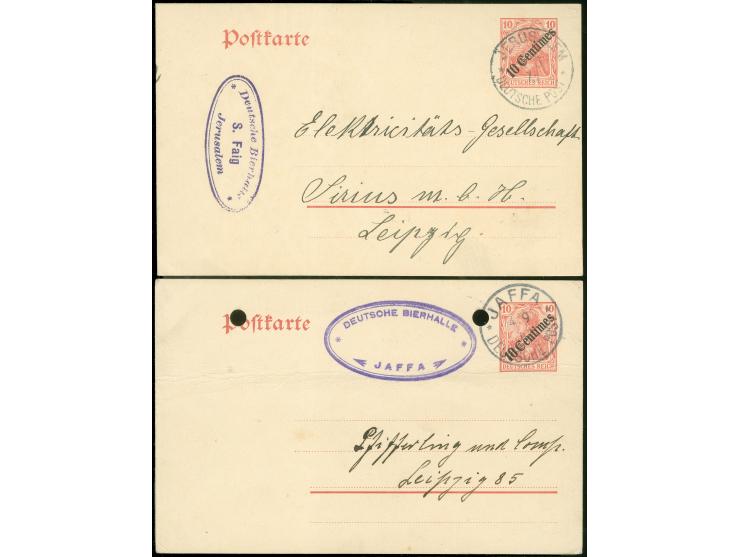 Postkarte
10 10
10 Centimes
DEUTSCHES REICH
JERUSALEM
* DEUTSCHE POST *
* Deutsche Bierhalle *
S. Faig
Jerusalem
Elektricitäts-Gesellschaft
Sirius m.b.H.
Leipzig.
Postkarte
10 10
10 Centimes
DEUTSCHES REICH
JAFFA
* DEUTSCHE POST *
* DEUTSCHE BIERHALLE *
JAFFA
Pfifferling und Comp.
Leipzig 85